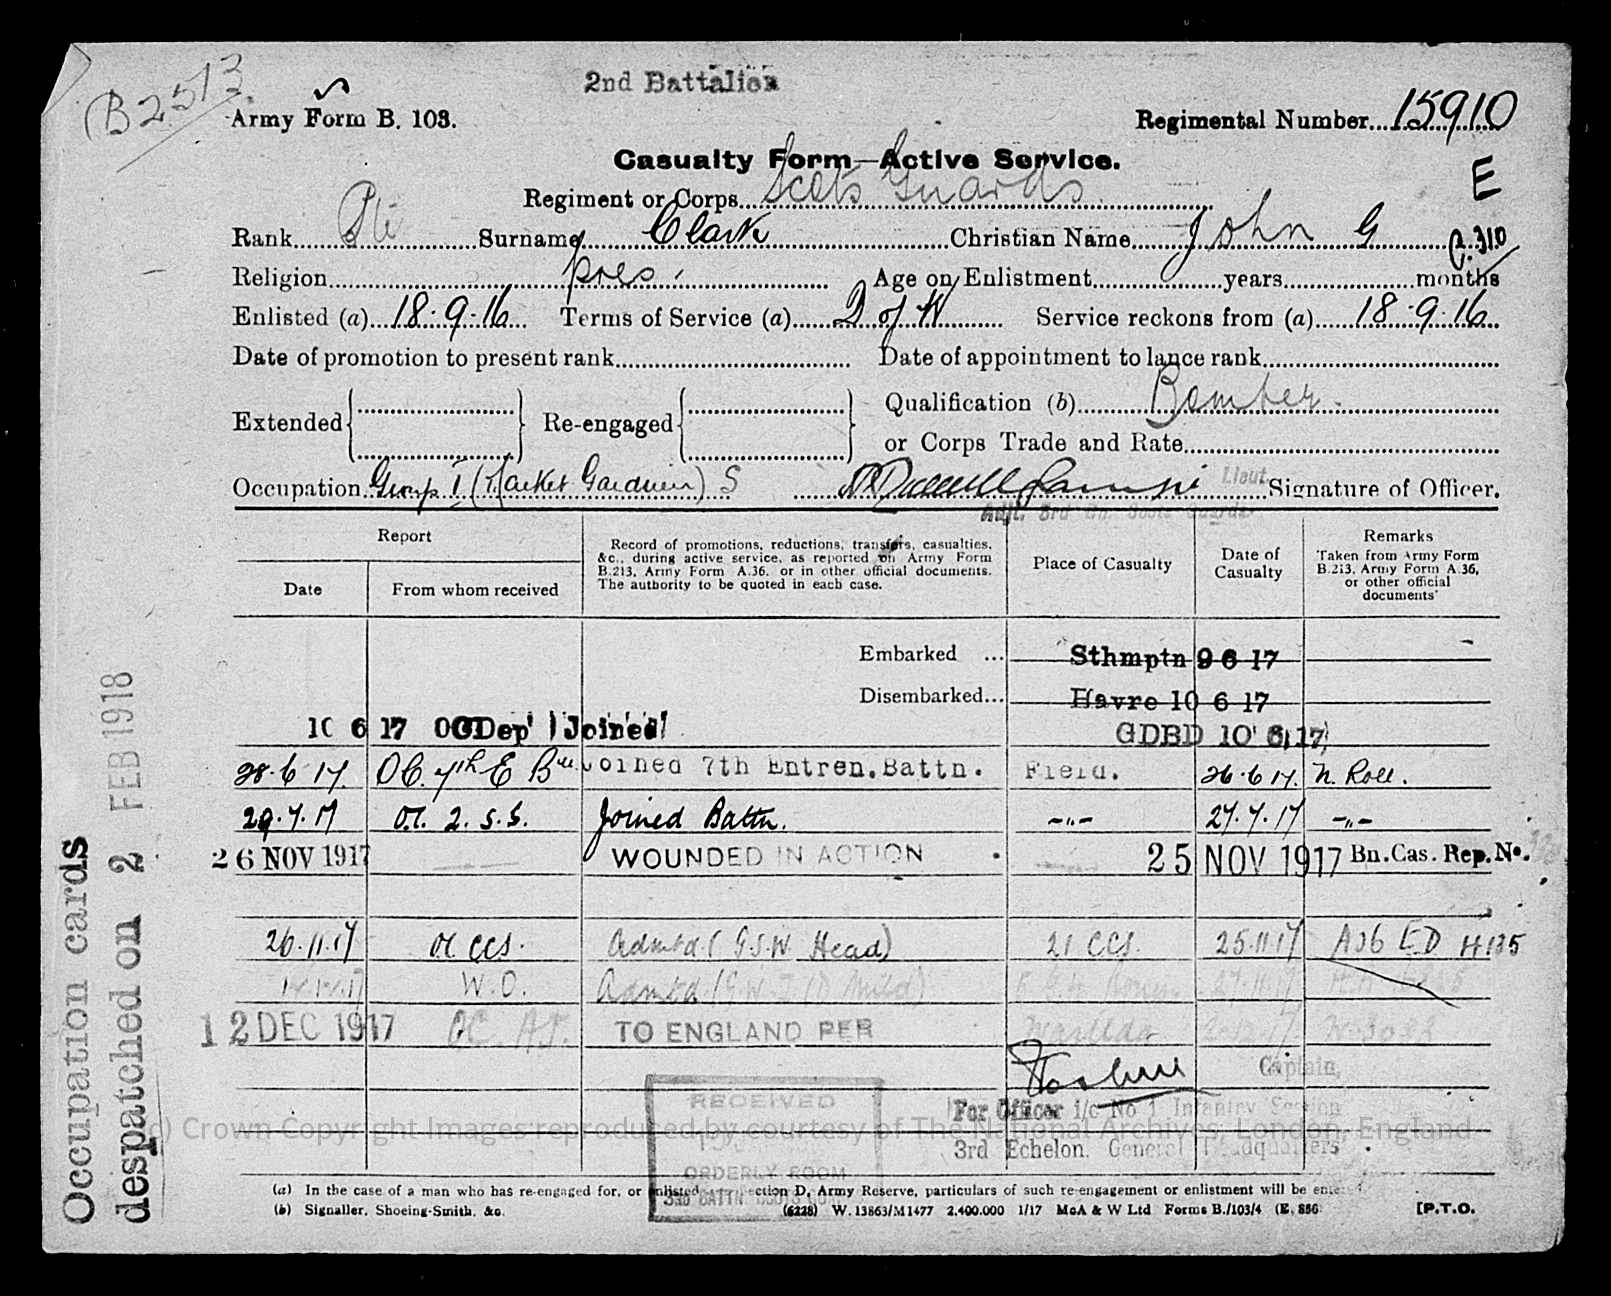 (B2513
2nd Battalion
Army Form B. 103.
Regimental Number 15910
Casualty Form—Active Service.
E
Regiment or Corps Scots Guards
Rank Pte Surname Clark Christian Name John G
C.310
Religion pres. Age on Enlistment years months
Enlisted (a) 18.9.16 Terms of Service (a) D of W Service reckons from (a) 18.9.16
Date of promotion to present rank Date of appointment to lance rank
Extended Re-engaged Qualification (b) Bomber.
or Corps Trade and Rate
Occupation Group I (Market Gardiner) S Lieut. Signature of Officer.
Adjt. 3rd Bn. Scots Guards.
Report
Date
From whom received
Record of promotions, reductions, transfers, casualties,
&c., during active service, as reported on Army Form
B.213, Army Form A.36, or in other official documents.
The authority to be quoted in each case.
Place of Casualty
Date of
Casualty
Remarks
Taken from Army Form
B.213, Army Form A.36,
or other official
documents
Embarked ... Sthmptn 9 6 17
Disembarked... Havre 10 6 17
10 6 17 OGDep Joined GDBD 10 6 17
28.6.17. OC. 7th E Bn Joined 7th Entren. Battn. Field. 26.6.17. N. Roll.
29.7.17 OC. 2. S.G. Joined Battn. -"- 27.7.17 -"-
26 NOV 1917 WOUNDED IN ACTION 25 NOV 1917 Bn. Cas. Rep. No.
26.11.17 OC CCS. Admtd (G.S.W Head) 21 CCS. 25.11.17 A36 ED H135
W.O. Admtd (G.W. Mild) 27.11.17
12 DEC 1917 OC. A.T. TO ENGLAND PER W.3083
Captain,
For Officer i/c No 1 Infantry Section
3rd Echelon. General Headquarters
RECEIVED
ORDERLY ROOM
3RD BATTN SCOTS GUARDS
(c) Crown Copyright Images reproduced by courtesy of The National Archives, London, England
(a) In the case of a man who has re-engaged for, or enlisted ection D, Army Reserve, particulars of such re-engagement or enlistment will be entered
(b) Signaller, Shoeing-Smith, &c. (6228) W. 13863/M1477 2,400,000 1/17 McA & W Ltd Forms B./103/4 (E. 856 [P.T.O.
Occupation cards
despatched on 2 FEB 1918